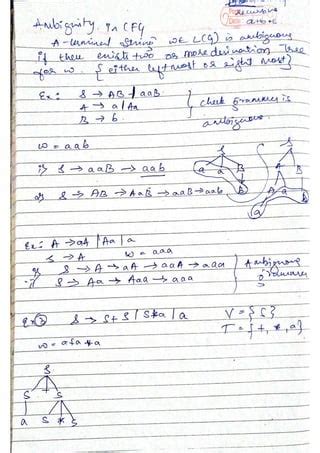 recursive
above
Ambiguity in CFG
A terminal string w ∈ L(G) is ambiguous
if there exists two or more derivation tree
for w. { either left most or right most }
Ex: S → AB | aaB
A → a | Aa
B → b
check grammar is
ambiguous
w = aab
i) S → aaB → aab
S
a a B
b
S
A B
A a b
a
S → AB → AaB → aaB → aab
Ex: A → aA | Aa | a
S → A w = aaa
S → A → aA → aaA → aaa
S → Aa → Aaa → aaa
Ambiguous
Grammar
Ex S → S+S | S*a | a
V = {S}
T = {+, *, a}
w = a+a*a
S
S + S
a S * S